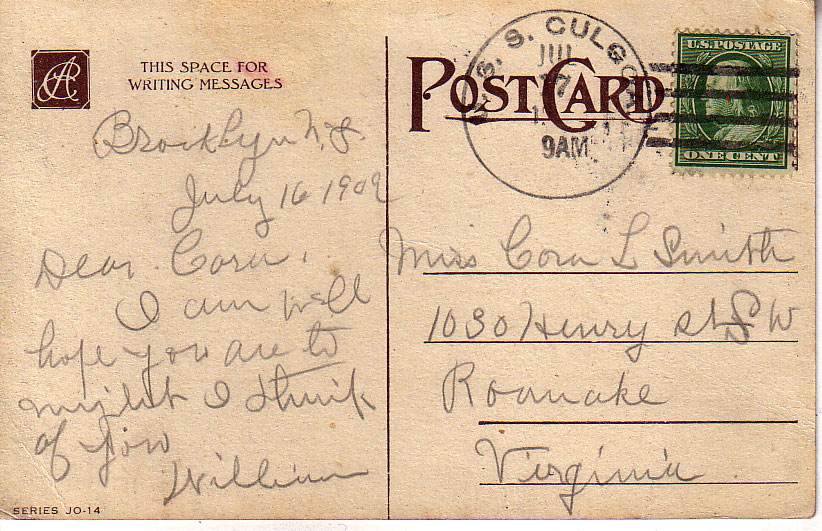 THIS SPACE FOR
WRITING MESSAGES
Brooklyn N.Y.
July 16 1909
Dear Cora,
I am well
hope you are to
might I think
of you
William
SERIES JO-14
POST CARD
U.S.S. CULGOA
JUL
17
9AM
U.S. POSTAGE
ONE CENT
Miss Cora L Smith
1030 Henry St S W
Roanoake
Virginia